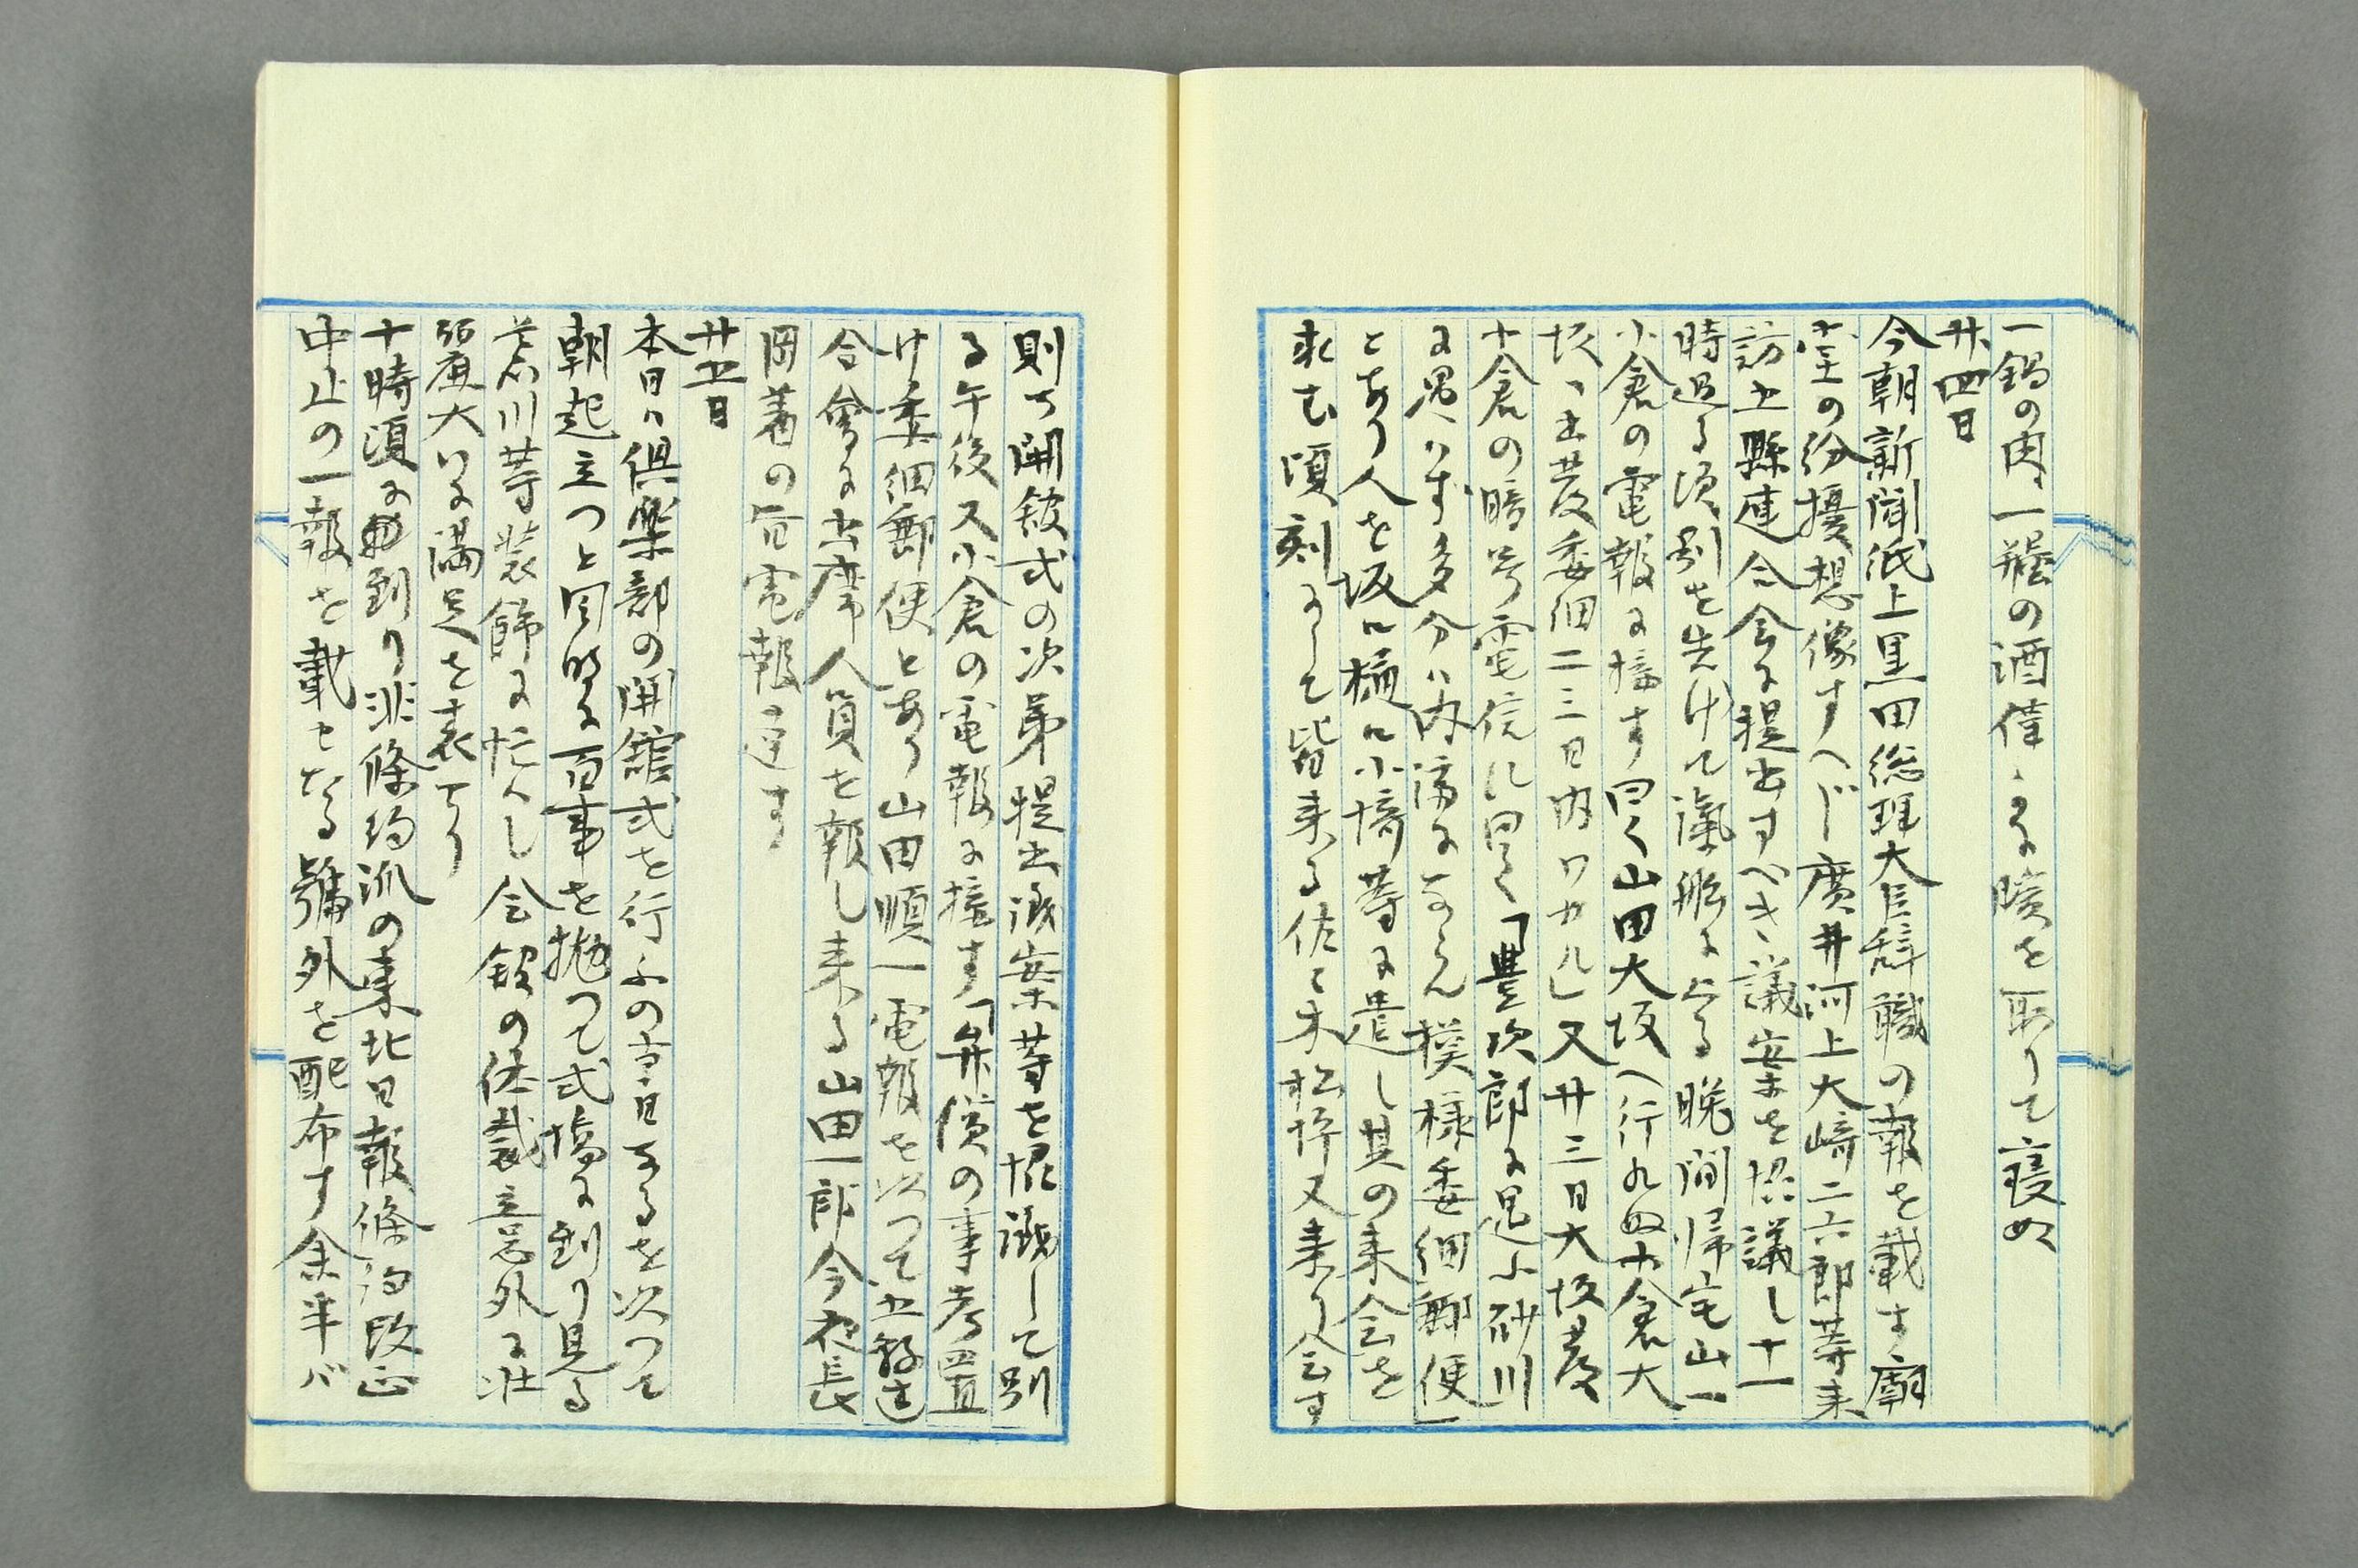 一鍋の肉、一罎の酒僅々に暖を取りて寝ぬ
廿四日
今朝新聞紙上黒田総理大臣辞職の報を載す廟
堂の紛擾想像すへし廣井河上大﨑二六郎等来
訪五縣連合会に提出すべき議案を协議し十一
時過る頃別を告けて漁船に上る晩間帰宅山一
小倉の電報に接す曰く山田大坂へ行九四小倉大
坂ヽ出発委細二三日内ワカル」又廿三日大坂発
小倉の暗号電信に曰く「豊次郎に逞小砂川
に遇ハず多分ハ内済にならん模様委細郵便」
とあり人を坂口樋口小﨑等に遣し其の来会を
求む頃刻にして皆来る佐々木松枠又来り会す
則ち開館式の次第提出議案等を协議して別
る午後又小倉の電報に接す「弁償の事考置
け委細郵便とあり山田順一電報を以つて五縣連
合會に出席人員を報し来る山田一郎今夜長
岡着の旨電報達す
廿五日
本日ハ倶楽部の開館式を行ふの吉日なるを以つて
朝起立つと同時に百事を拋つて式塲に到り見る
若石川等装飾に忙くし会館の体裁意外に壮
麗大いに満足を表せり
十時頃に到り非條約派の東北日報條約改正
中止の一報を載せたる號外を配布す余半バ